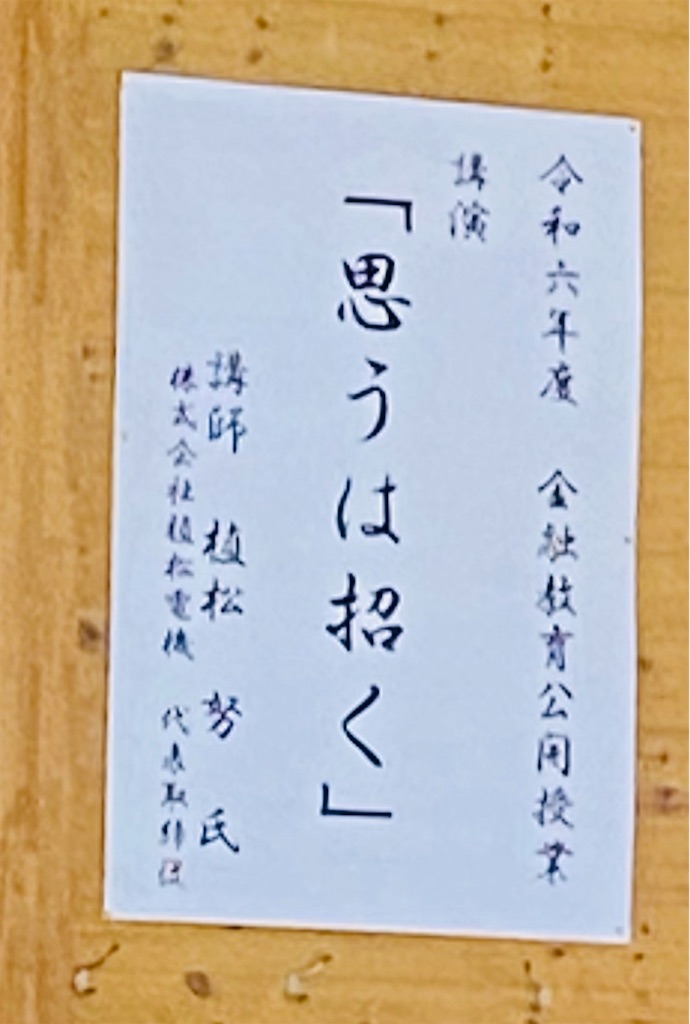 令和六年度 金融教育公開授業
講演
「思うは招く」
講師 植松 努 氏
株式会社植松電機 代表取締役